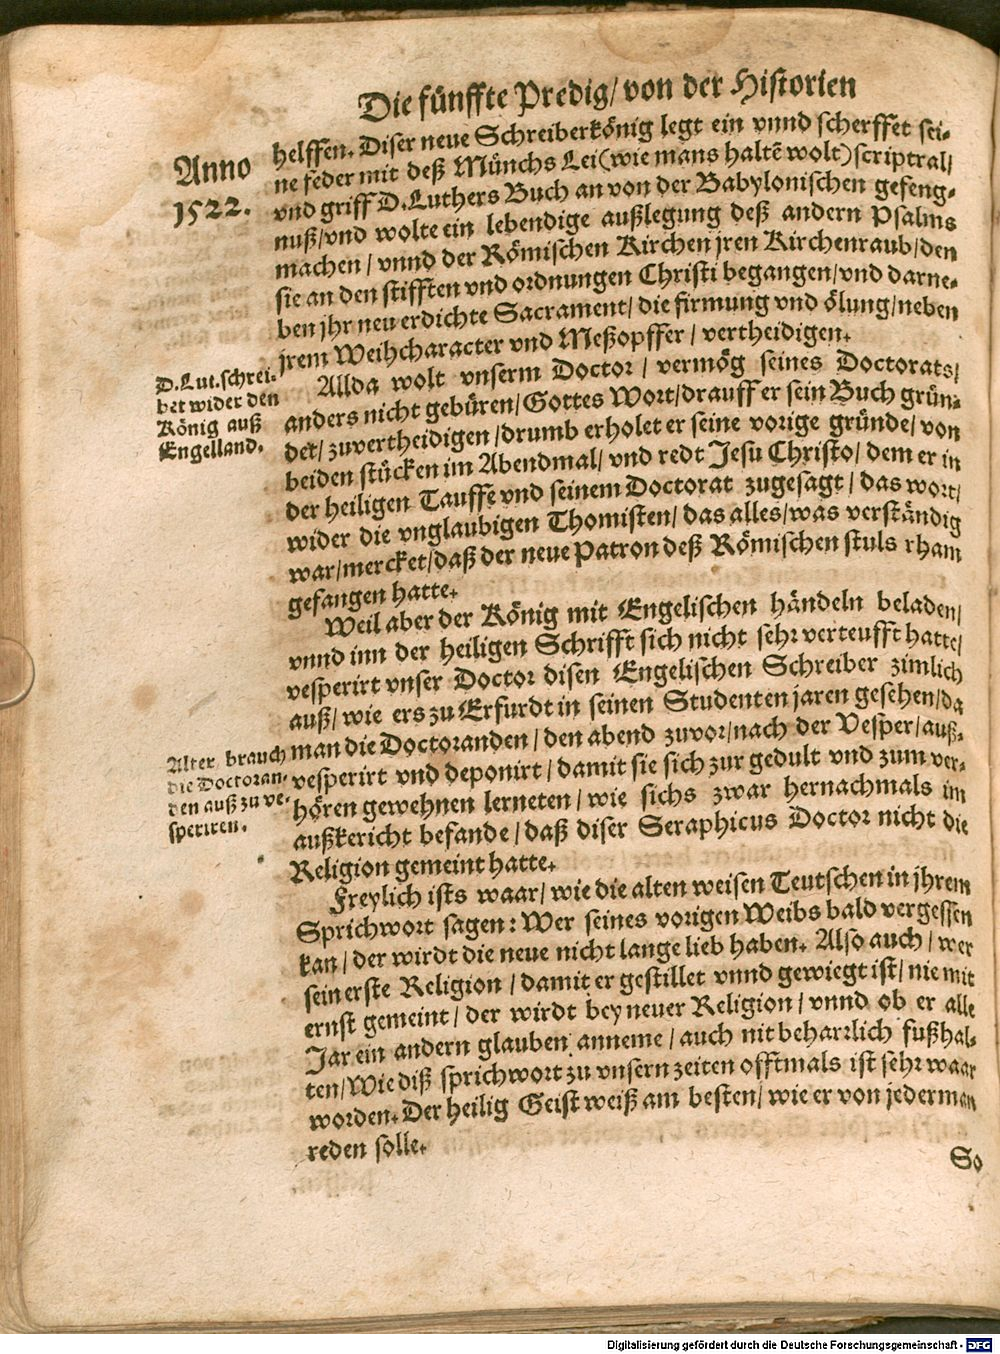 Die fünffte Predig/ von der Historien
Anno
1522.
helffen. Diser neue Schreiberkönig legt ein vnnd scherffet sei-
ne feder mit deß Münchs Lei (wie mans haltē wolt) scriptral/
vnd griff D. Luthers Buch an von der Babylonischen gefeng-
nuß/ vnd wolte ein lebendige außlegung deß andern Psalms
machen/ vnnd der Römischen Kirchen jren Kirchenraub/ den
sie an den stifften vnd ordnungen Christi begangen/ vnd darne-
ben jhr neu erdichte Sacrament/ die firmung vnd ölung/ neben
jrem Weihcharacter vnd Meßopffer/ vertheidigen.
D. Lut. schrei-
bet wider den
König auß
Engelland.
Allda wolt vnserm Doctor/ vermög seines Doctorats/
anders nicht gebüren/ Gottes Wort/ drauff er sein Buch grün-
det/ zuvertheidigen/ drumb erholet er seine vorige gründe/ von
beiden stücken im Abendmal/ vnd redt Jesu Christo/ dem er in
der heiligen Tauffe vnd seinem Doctorat zugesagt/ das wort/
wider die vnglaubigen Thomisten/ das alles/ was verständig
war/ mercket/ daß der neue Patron deß Römischen stuls rham
gefangen hatte.
Weil aber der König mit Engelischen händeln beladen/
vnnd inn der heiligen Schrifft sich nicht sehr verteufft hatte/
vesperirt vnser Doctor disen Engelischen Schreiber zimlich
auß/ wie ers zu Erfurdt in seinen Studenten jaren gesehen/ da
man die Doctoranden/ den abend zuvor/ nach der Vesper/ auß-
vesperirt vnd deponirt/ damit sie sich zur gedult vnd zum ver-
hören gewehnen lerneten/ wie sichs zwar hernachmals im
außkericht befande/ daß diser Seraphicus Doctor nicht die
Religion gemeint hatte.
Alter brauch
die Doctoran-
den auß zu ve-
speriren.
Freylich ists waar/ wie die alten weisen Teutschen in jhrem
Sprichwort sagen: Wer seines vorigen Weibs bald vergessen
kan/ der wirdt die neue nicht lange lieb haben. Also auch/ wer
sein erste Religion/ damit er gestillet vnnd gewiegt ist/ nie mit
ernst gemeint/ der wirdt bey neuer Religion/ vnnd ob er alle
Jar ein andern glauben anneme/ auch nit beharrlich fußhal-
ten/ Wie diß sprichwort zu vnsern zeiten offtmals ist sehr waar
worden. Der heilig Geist weiß am besten/ wie er von jederman
reden solle.
So
Digitalisierung gefördert durch die Deutsche Forschungsgemeinschaft - DFG